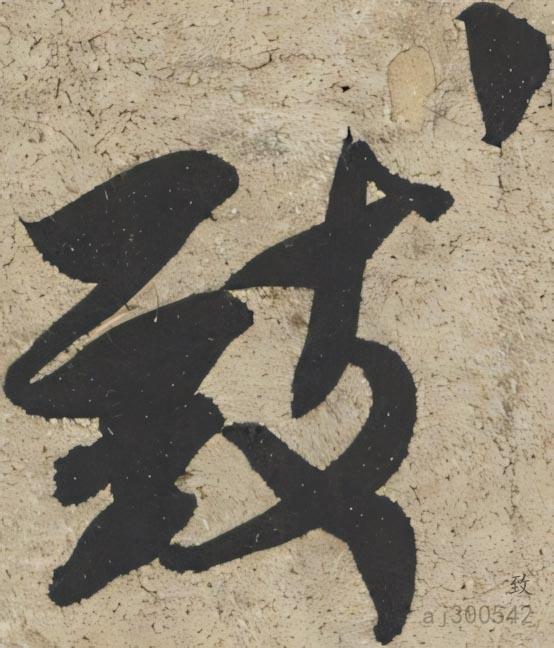 致
致
aj300542